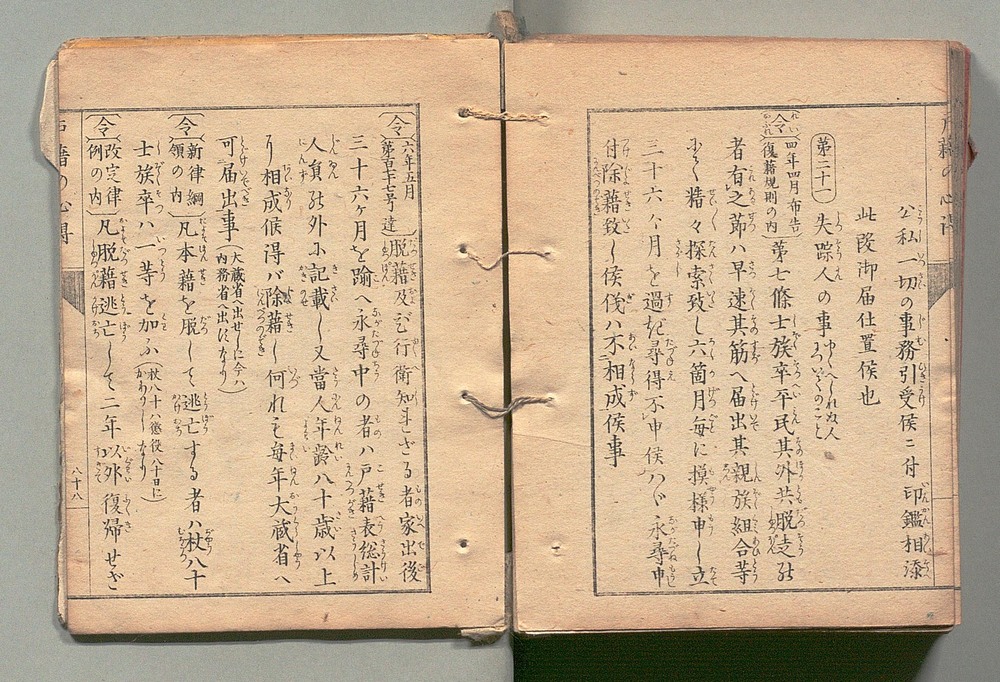 公私一切の事務引受候ニ付印鑑相添
此段御届仕置候也
第二十一 失踪人の事
令 四年四月布告 復籍規則の内 第七條士族卒平民其外共脱走的
者有之節ハ早速其筋へ届出其親族組合等
精々探索致し六箇月毎に摸様申し立
三十六ヶ月を過ぎ尋得不申候ハヾ永尋申
付除籍致し候儀ハ不相成候事
戸籍の心得
令 六年五月 第百七十七号達 脱籍及び行衛知れざる者家出後
三十六ヶ月を踰へ永尋中の者ハ戸籍表総計
人員外に記載し又當人年齢八十歳以上
り相成候得バ除籍し何れも毎年大蔵省へ
可届出事(大蔵省へ出せしに今ハ内務省へ出になり)
令 新律綱領の内 凡本籍を脱して逃亡する者ハ杖八十
士族卒ハ一等を加ふ(杖八十ハ懲役八十日にかわりしなり)
令 改定律例の内 凡脱籍逃亡して二年以外復帰せざ
八十八